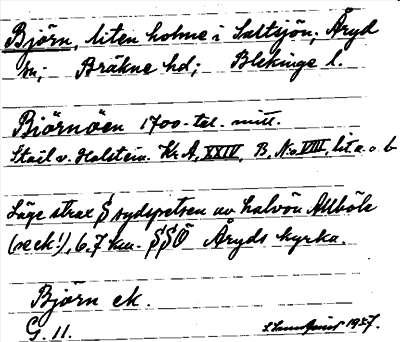 Björn, liten holme i Saltsjön; Åryd
sn; Bräkne hd; Blekinge l.
Biörnöen 1700-tal. mitt.
Stael v. Holstein. Kr. A, XXIV, B, No VIII, lit a. o b
Läge strax § sydspetsen av halvön Allböle
(se ek!), 6,7 km. §§Ö Åryds kyrka.
Björn ek.
G. 11.
1927.